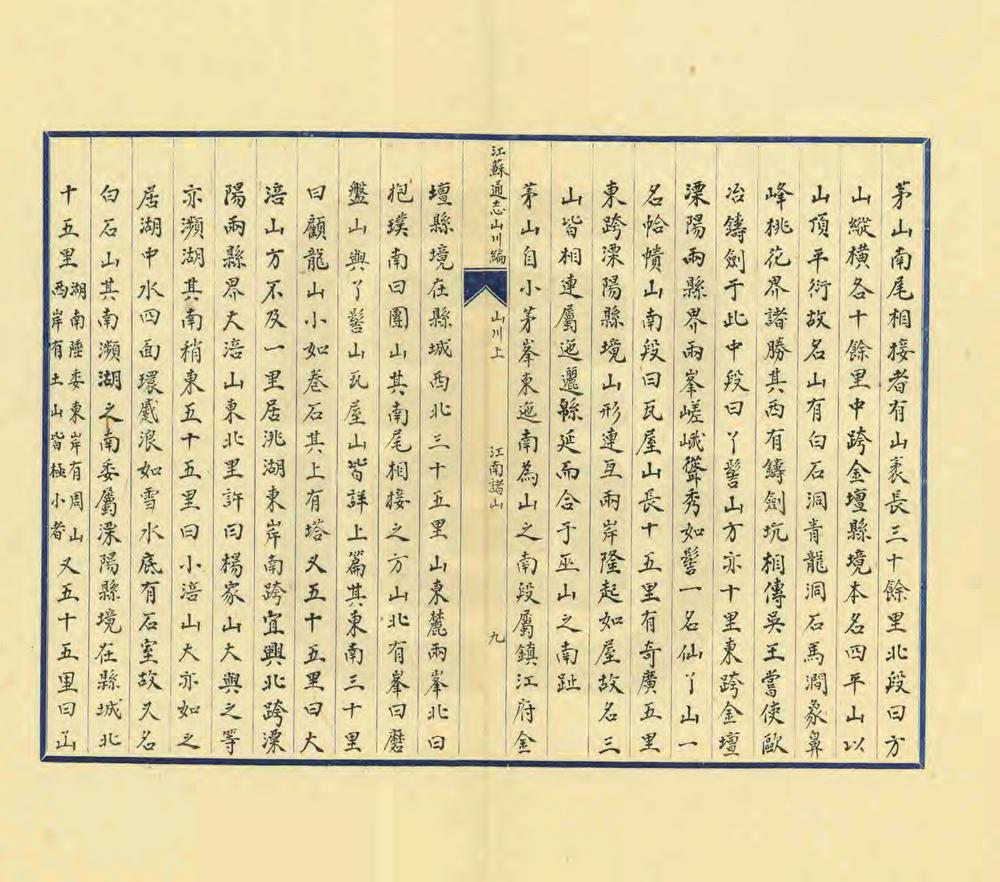 茅山南尾相接者有山袤長三十餘里北段曰方
山縱橫各十餘里中跨金壇縣境本名四平山以
山頂平衍故名山有白石洞青龍洞石馬澗象鼻
峰桃花界諸勝其西有鑄劍坑相傳吳王嘗使歐
冶鑄劍于此中段曰丫髻山方亦十里東跨金壇
溧陽兩縣界兩峯嵯峨聳秀如髻一名仙丫山一
名帢幘山南段曰瓦屋山長十五里有奇廣五里
東跨溧陽縣境山形連亘兩岸隆起如屋故名三
山皆相連屬迤邐緜延而合于巫山之南趾
茅山自小茅峯東迤南為山之南段屬鎮江府金
江蘇通志山川編 山川上 江南諸山 九
壇縣境在縣城西北三十五里山東麓兩峯北曰
抱璞南曰團山其南尾相接之方山北有峯曰磨
盤山與丫髻山瓦屋山皆詳上篇其東南三十里
曰顧龍山小如巻石其上有塔又五十五里曰大
涪山方不及一里居洮湖東岸南跨宜興北跨溧
陽兩縣界大涪山東北里許曰楊家山大與之等
亦瀕湖其南稍東五十五里曰小涪山大亦如之
居湖中水四面環蹙浪如雪水底有石室故又名
白石山其南瀕湖之南委屬溧陽縣境在縣城北
十五里湖南陲委東岸有周山西岸有土山皆極小者又五十五里曰